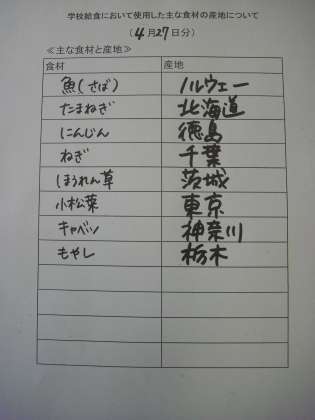 学校給食において使用した主な食材の産地について
(4月27日分)
≪主な食材と産地≫
食材 産地
魚(さば) ノルウェー
たまねぎ 北海道
にんじん 徳島
ねぎ 千葉
ほうれん草 茨城
小松菜 東京
キャベツ 神奈川
もやし 栃木